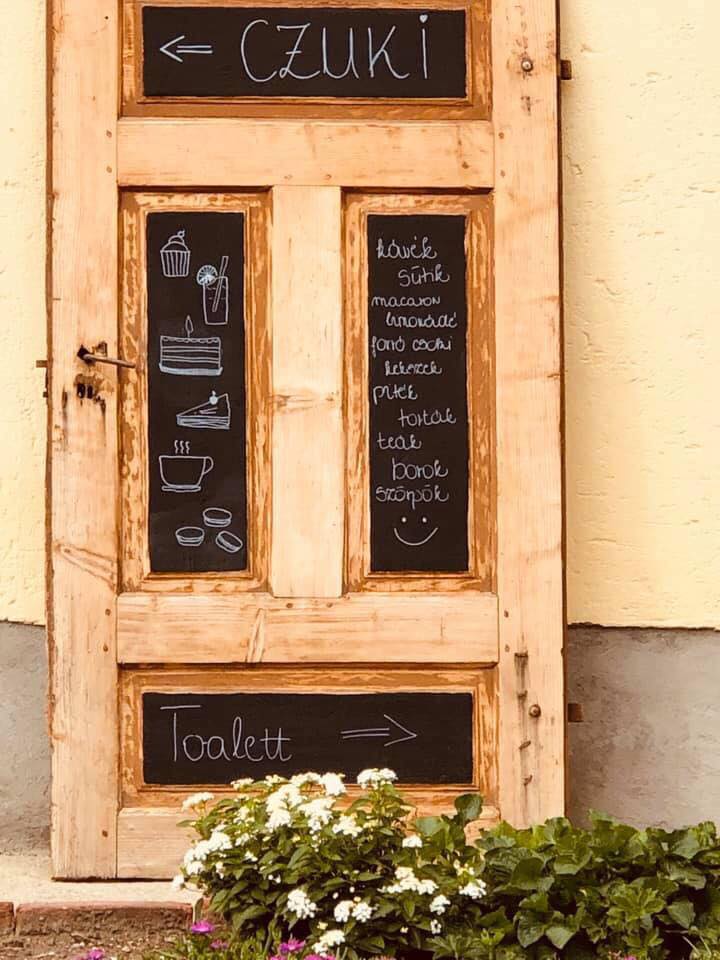 ← CZUKI
kávék
sütik
macaron
limonádé
forró csoki
kekszek
piték
torták
teák
borok
szörpök
Toalett →